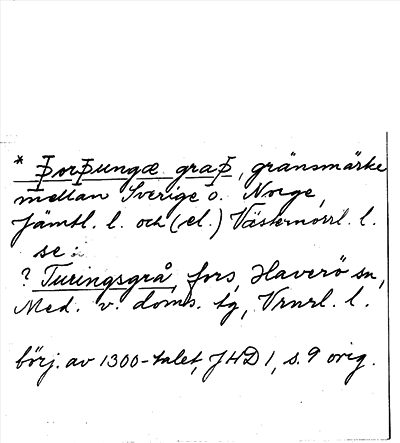 * Þorþungæ graþ, gränsmärke
mellan Sverige o. Norge,
Jämtl. l. och (el.) Västernorrl. l.
se:
? Turingsgrå, fors, Haverö sn,
Med. v. doms. tg, Vrnrl. l.
börj. av 1300-talet, JHD 1, s. 9 orig.